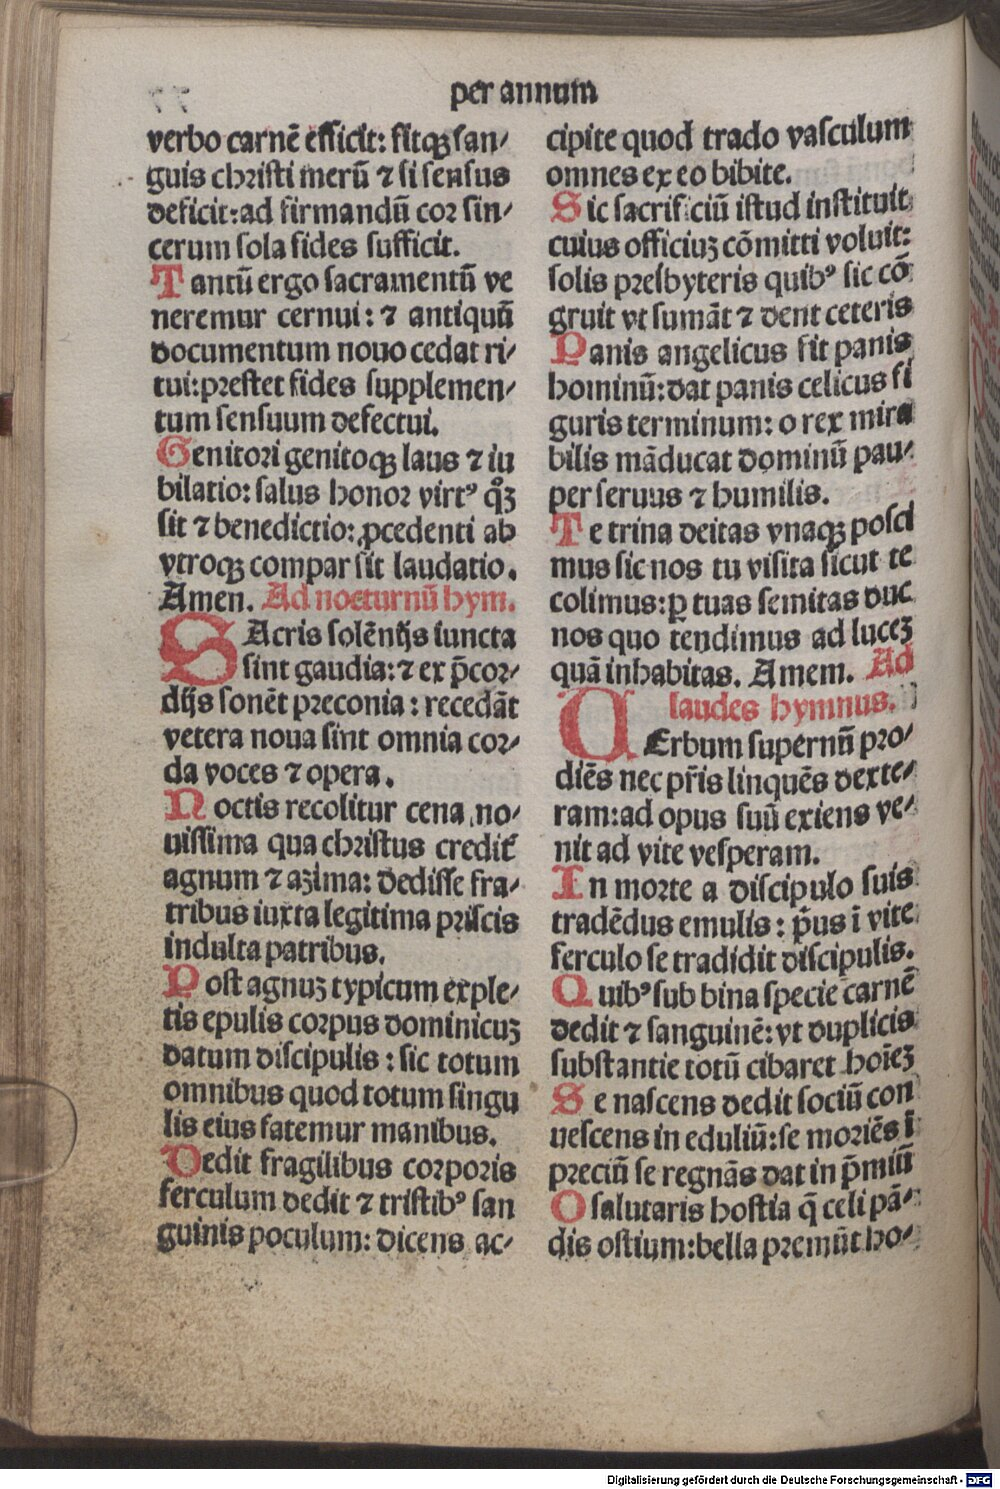 per annum
verbo carnē efficit: fitqꝫ san⸗
guis christi merū ⁊ si sensus
deficit: ad firmandū cor sin⸗
cerum sola fides sufficit.
Tantū ergo sacramentū ve
neremur cernui: ⁊ antiquū
documentum nouo cedat ri⸗
tui: prestet fides supplemen⸗
tum sensuum defectui.
Genitori genitoqꝫ laus ⁊ iu
bilatio: salus honor virtꝰ qͦꝫ
sit ⁊ benedictio: ꝓcedenti ab
vtroqꝫ compar sit laudatio.
Amen. Ad nocturnū hym.
SAcris solēnijs iuncta
sint gaudia: ⁊ ex p̄cor⸗
dijs sonēt preconia: recedāt
vetera noua sint omnia cor⸗
da voces ⁊ opera.
Noctis recolitur cena no⸗
uissima qua christus credit᷑
agnum ⁊ azima: dedisse fra⸗
tribus iuxta legitima priscis
indulta patribus.
Post agnuꝫ typicum exple⸗
tis epulis corpus dominicuꝫ
datum discipulis: sic totum
omnibus quod totum singu
lis eius fatemur manibus.
Dedit fragilibus corporis
ferculum dedit ⁊ tristibꝰ san
guinis poculum: dicens ac⸗
cipite quod trado vasculum
omnes ex eo bibite.
Sic sacrificiū istud instituit
cuius officiuꝫ cōmitti voluit:
solis presbyteris quibꝰ sic cō
gruit vt sumāt ⁊ dent ceteris
Panis angelicus fit panis
hominū: dat panis celicus fi
guris terminum: o rex mira
bilis māducat dominū pau⸗
per seruus ⁊ humilis.
Te trina deitas vnaqꝫ posci
mus sic nos tu visita sicut te
colimus: ꝑ tuas semitas duc
nos quo tendimus ad luceꝫ
quā inhabitas. Amem. Ad
laudes hymnus.
VErbum supernū pro⸗
diēs nec pr̄is linquēs dexte⸗
ram: ad opus suū exiens ve⸗
nit ad vite vesperam.
In morte a discipulo suis
tradēdus emulis: p̄us ī vite
ferculo se tradidit discipulis.
Quibꝰ sub bina specie carnē
dedit ⁊ sanguinē: vt duplicis
substantie totū cibaret hoīeꝫ
Se nascens dedit sociū con
uescens in eduliū: se moriēs ī
preciū se regnās dat in p̄miū
O salutaris hostia q̄ celi pā⸗
dis ostium: bella premūt ho⸗
Digitalisierung gefördert durch die Deutsche Forschungsgemeinschaft - DFG